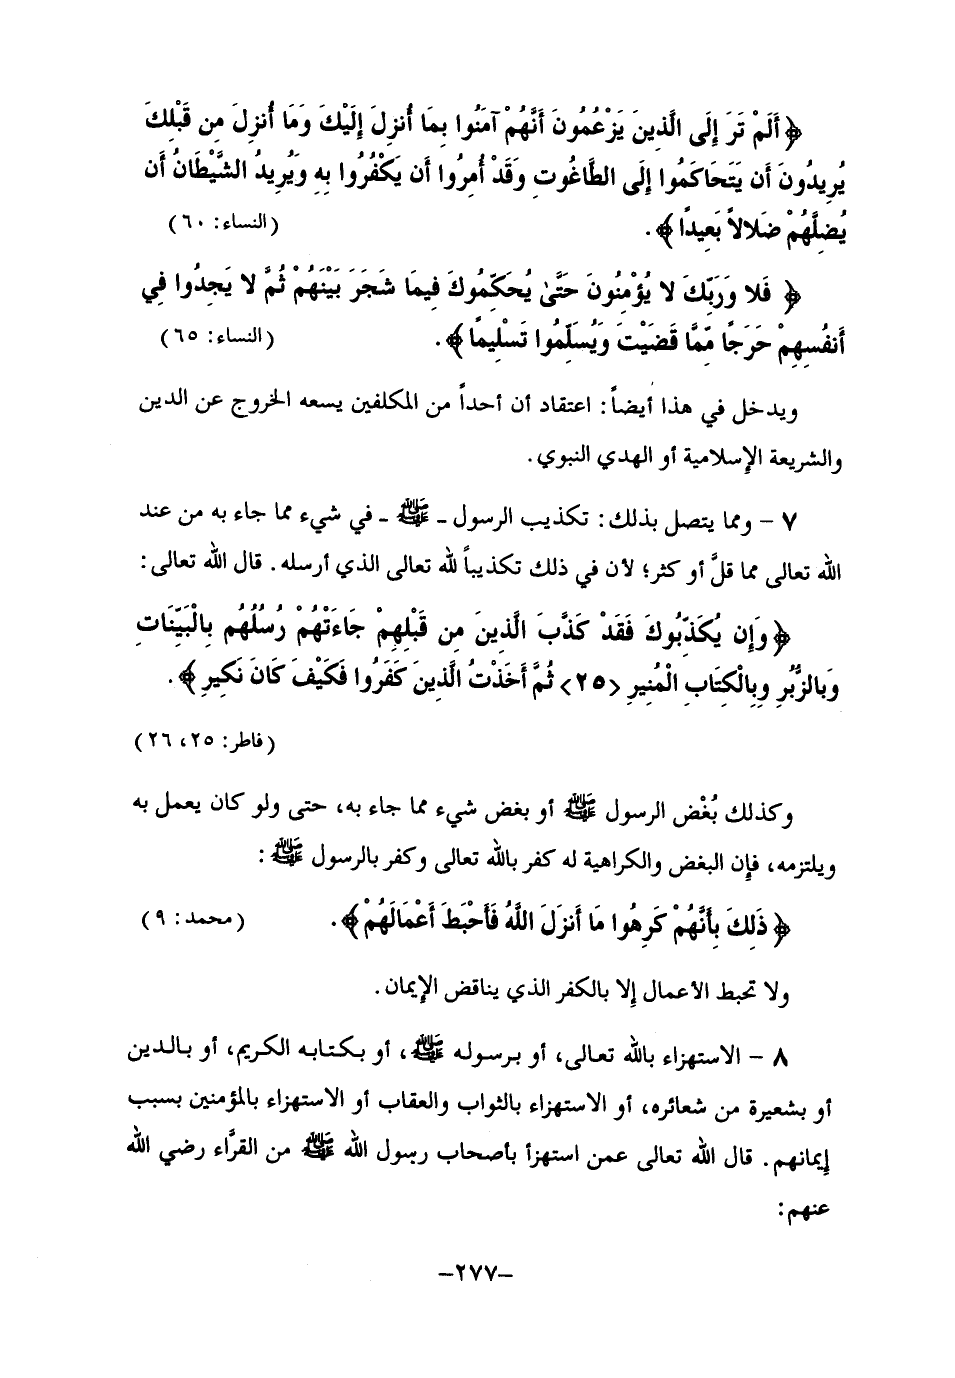 ﴿ أَلَمْ تَرَ إِلَى الَّذِينَ يَزْعُمُونَ أَنَّهُمْ آمَنُوا بِمَا أُنزِلَ إِلَيْكَ وَمَا أُنزِلَ مِن قَبْلِكَ
يُرِيدُونَ أَن يَتَحَاكَمُوا إِلَى الطَّاغُوتِ وَقَدْ أُمِرُوا أَن يَكْفُرُوا بِهِ وَيُرِيدُ الشَّيْطَانُ أَن
يُضِلَّهُمْ ضَلالاً بَعِيدًا ﴾. (النساء: ٦٠)
﴿ فَلا وَرَبِّكَ لا يُؤْمِنُونَ حَتَّىٰ يُحَكِّمُوكَ فِيمَا شَجَرَ بَيْنَهُمْ ثُمَّ لا يَجِدُوا فِي
أَنفُسِهِمْ حَرَجًا مِّمَّا قَضَيْتَ وَيُسَلِّمُوا تَسْلِيمًا ﴾. (النساء: ٦٥)
ويدخل في هذا أيضاً: اعتقاد أن أحداً من المكلفين يسعه الخروج عن الدين
والشريعة الإسلامية أو الهدي النبوي.
٧ - ومما يتصل بذلك: تكذيب الرسول ـ ﷺ ـ في شيء مما جاء به من عند
الله تعالى مما قلَّ أو كثر؛ لأن في ذلك تكذيباً لله تعالى الذي أرسله. قال الله تعالى:
﴿ وَإِن يُكَذِّبُوكَ فَقَدْ كَذَّبَ الَّذِينَ مِن قَبْلِهِمْ جَاءَتْهُمْ رُسُلُهُم بِالْبَيِّنَاتِ
وَبِالزُّبُرِ وَبِالْكِتَابِ الْمُنِيرِ <٢٥> ثُمَّ أَخَذْتُ الَّذِينَ كَفَرُوا فَكَيْفَ كَانَ نَكِيرِ ﴾.
(فاطر: ٢٥، ٢٦)
وكذلك بُغْض الرسول ﷺ أو بغض شيء مما جاء به، حتى ولو كان يعمل به
ويلتزمه، فإن البغض والكراهية له كفر بالله تعالى وكفر بالرسول ﷺ:
﴿ ذَلِكَ بِأَنَّهُمْ كَرِهُوا مَا أَنزَلَ اللَّهُ فَأَحْبَطَ أَعْمَالَهُمْ ﴾. (محمد: ٩)
ولا تحبط الأعمال إلا بالكفر الذي يناقض الإيمان.
٨ - الاستهزاء بالله تعالى، أو برسوله ﷺ، أو بكتابه الكريم، أو بالدين
أو بشعيرة من شعائره، أو الاستهزاء بالثواب والعقاب أو الاستهزاء بالمؤمنين بسبب
إيمانهم. قال الله تعالى عمن استهزأ بأصحاب رسول الله ﷺ من القرَّاء رضي الله
عنهم:
-٢٧٧-